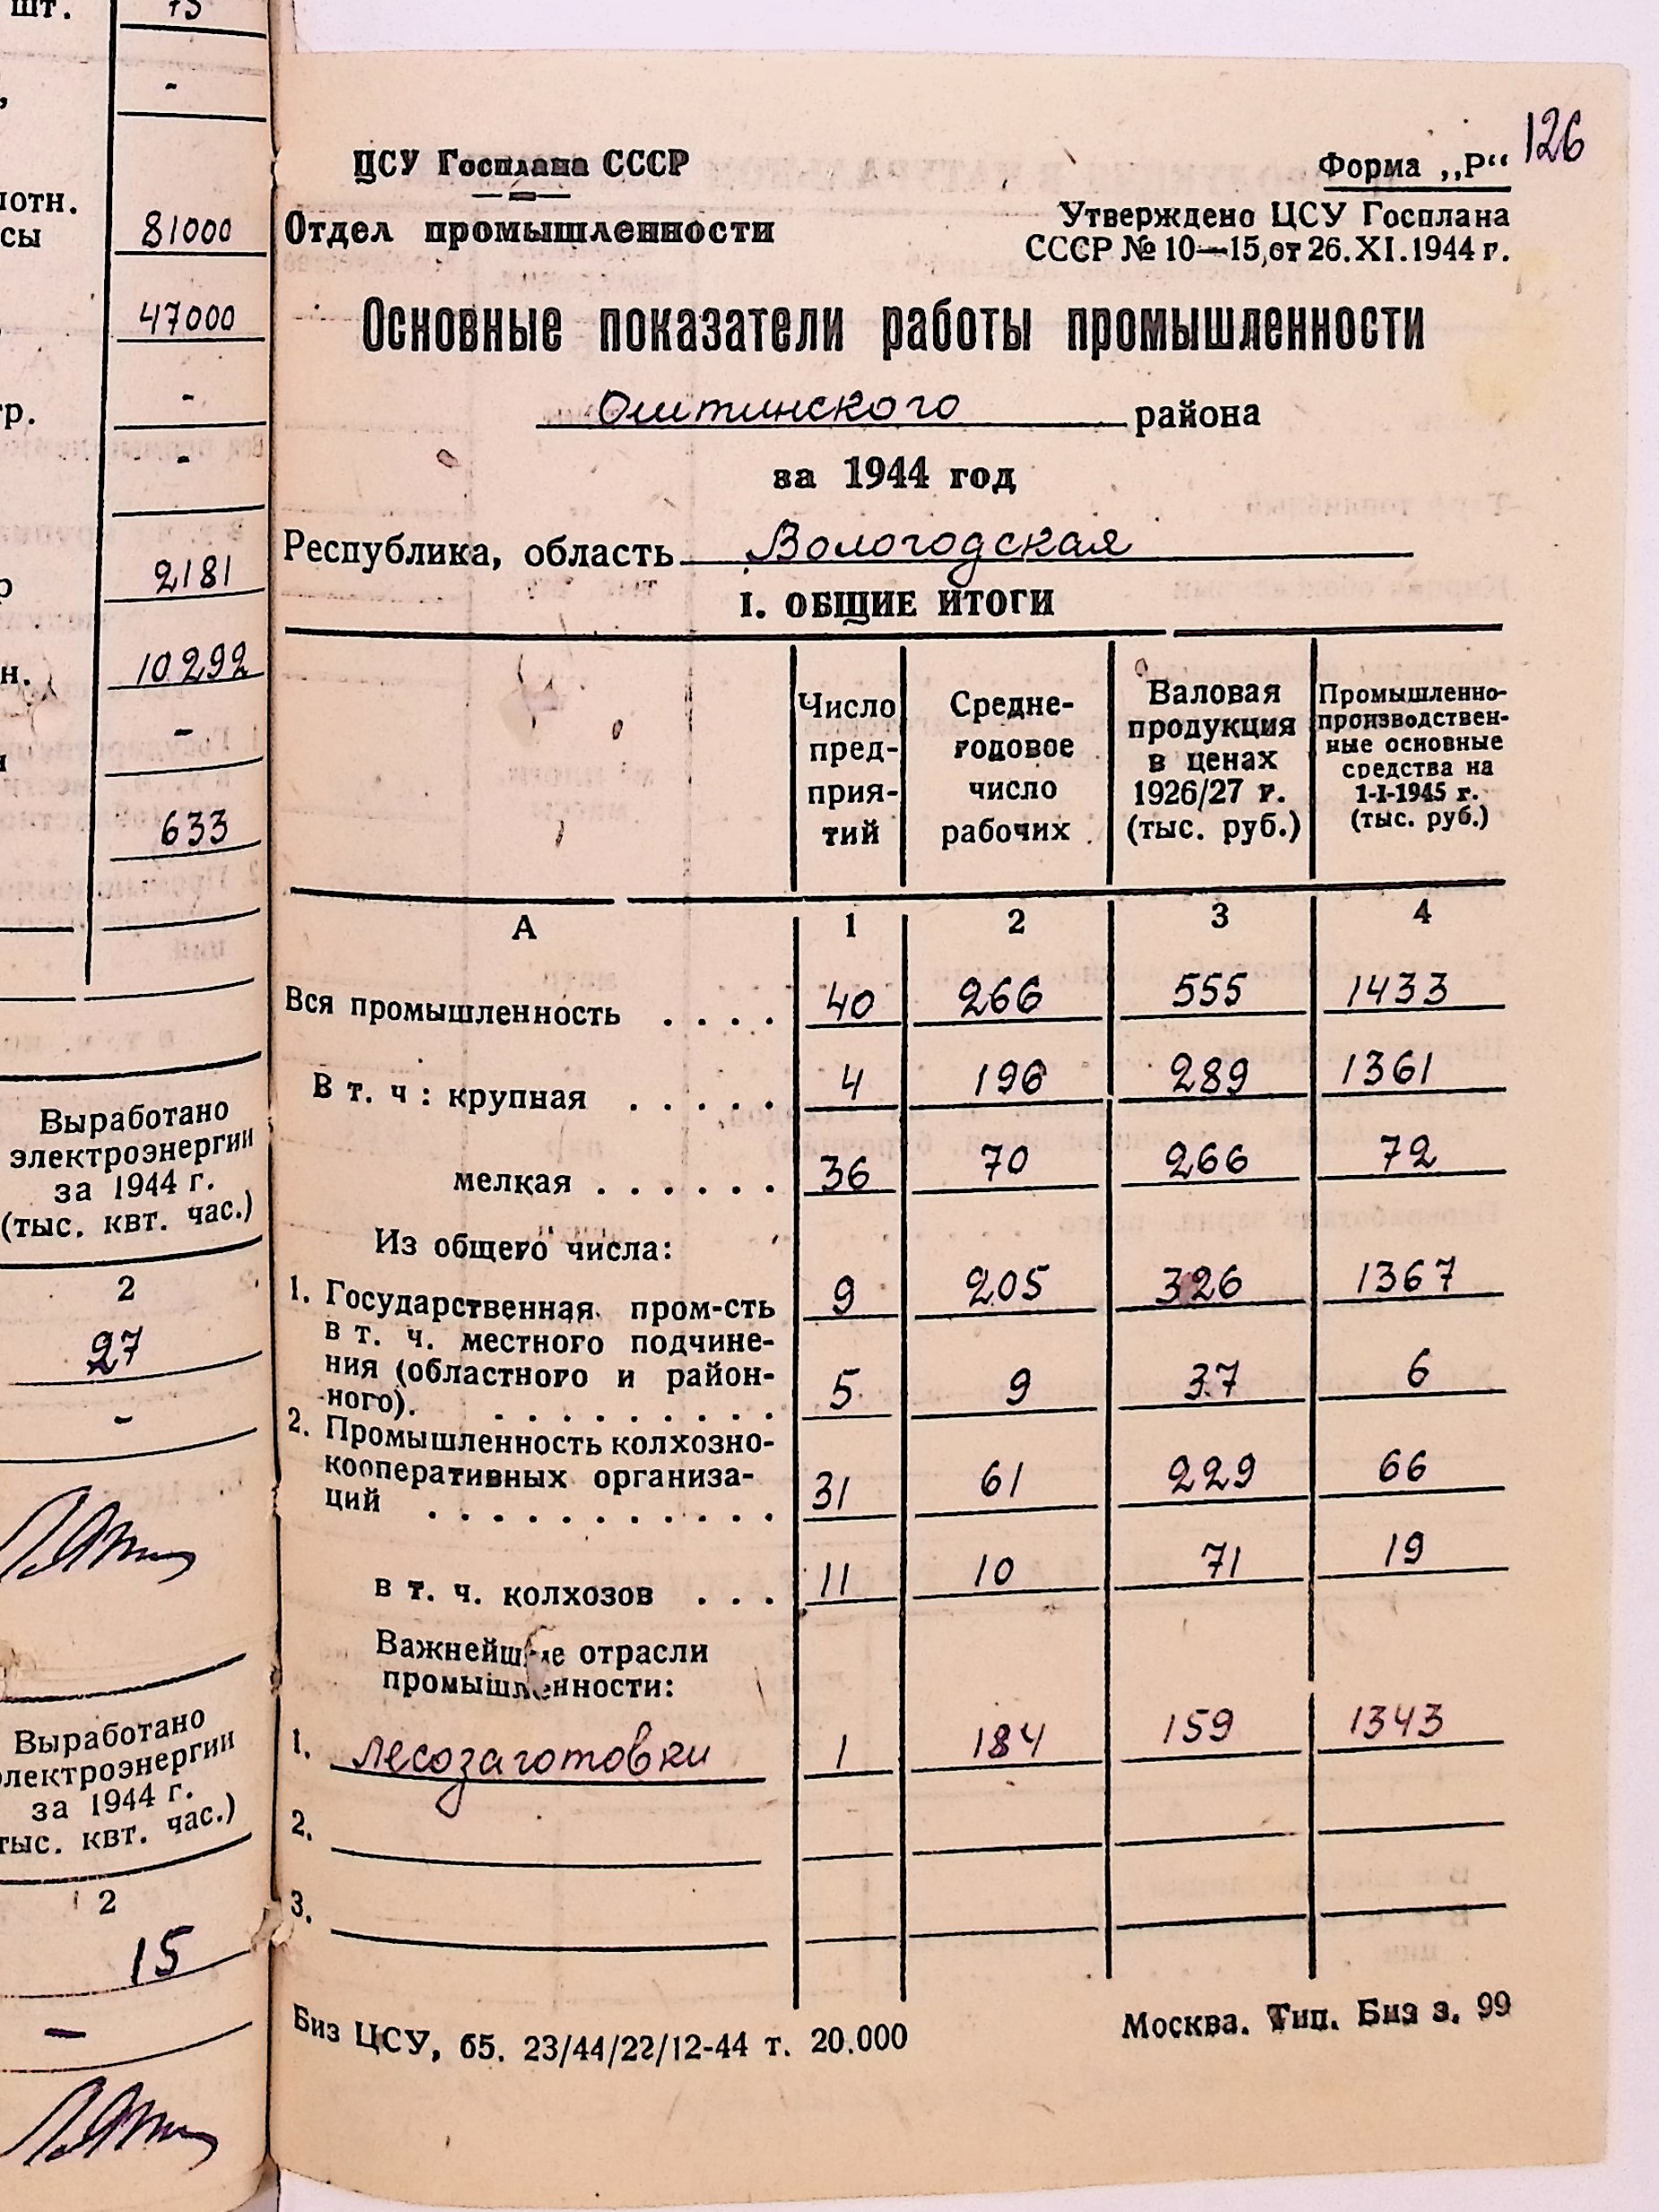 шт.
-
81000
47000
гр.
-
-
2181
10292
-
633
Выработано
электроэнергии
за 1944 г.
(тыс. квт. час.)
2
27
-
Выработано
электроэнергии
за 1944 г.
тыс. квт. час.)
2
15
-
126
ЦСУ Госплана СССР
Отдел промышленности
Форма „Р“
Утверждено ЦСУ Госплана
СССР № 10—15, от 26.XI.1944 г.
Основные показатели работы промышленности
Оштинского района
за 1944 год
Республика, область Вологодская
I. ОБЩИЕ ИТОГИ
Число пред-прия-тий
Средне-годовое число рабочих
Валовая продукция в ценах 1926/27 г. (тыс. руб.)
Промышленно-производствен-ные основные средства на 1-I-1945 г. (тыс. руб.)
А 1 2 3 4
Вся промышленность . . . . 40 266 555 1433
В т. ч : крупная . . . . . 4 196 289 1361
мелкая . . . . . . 36 70 266 72
Из общего числа:
1. Государственная пром-сть 9 205 326 1367
в т. ч. местного подчине-
ния (областного и район-
ного). . . . . . . . . . 5 9 37 6
2. Промышленность колхозно-
кооперативных организа-
ций . . . . . . . . . . . 31 61 229 66
в т. ч. колхозов . . . 11 10 71 19
Важнейшие отрасли
промышленности:
1. лесозаготовки 1 184 159 1343
2.
3.
Биз ЦСУ, 65. 23/44/22/12-44 т. 20.000
Москва. Тип. Биз з. 99